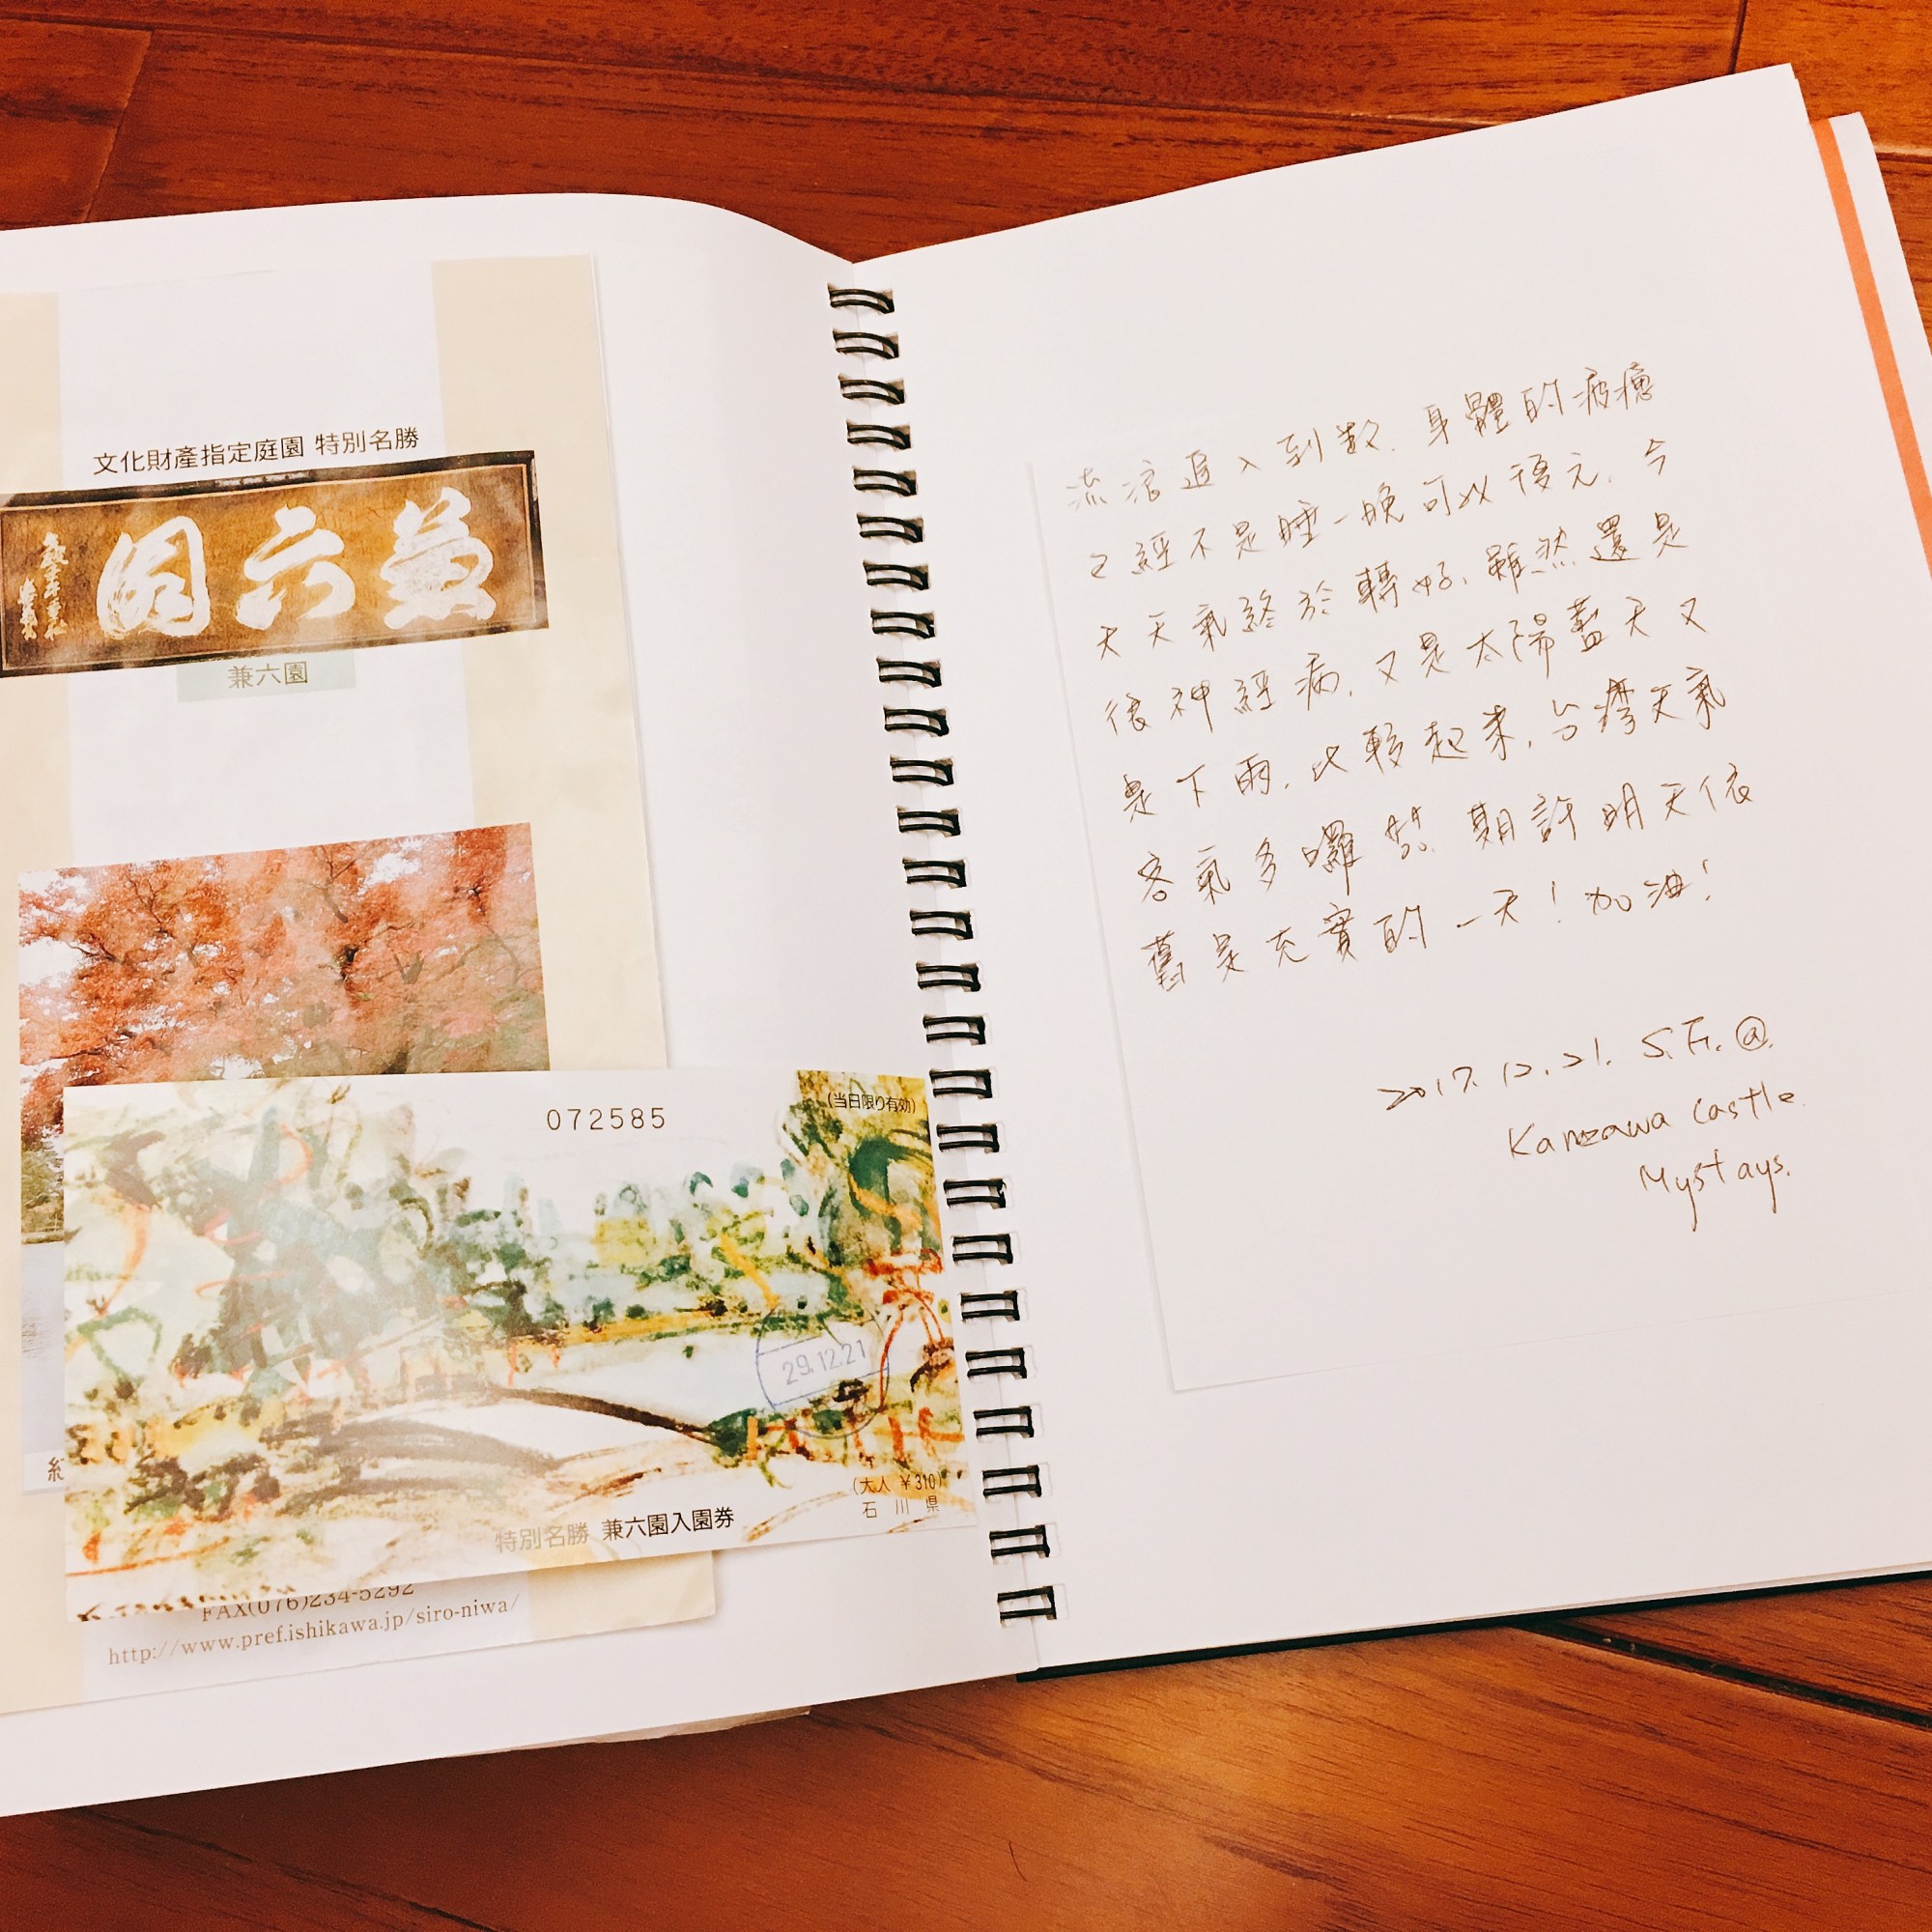 文化財産指定庭園 特別名勝
兼六園
兼六園
072585
(当日限り有効)
29.12.21
(大人 ¥310)
石川県
特別名勝 兼六園入園券
FAX(076)234-5292
http://www.pref.ishikawa.jp/siro-niwa/
流浪進入到數. 身體的疲憊
已經不是睡一晚可以復元. 今
天天氣終於轉好. 雖然還是
很神經病. 又是太陽藍天又
是下雨. 比較起來. 台灣天氣
客氣多囉 期許明天依
舊是充實的一天! 加油!
2017.12.21. S.F. @.
Kanzawa Castle.
Mystays.